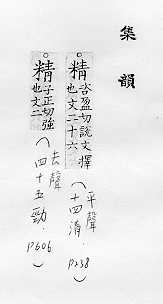 集韻
○精咨盈切說文擇也文二十六
(平聲十四清.P238)
○精子正切強也文二
(去聲四十五勁.P606)